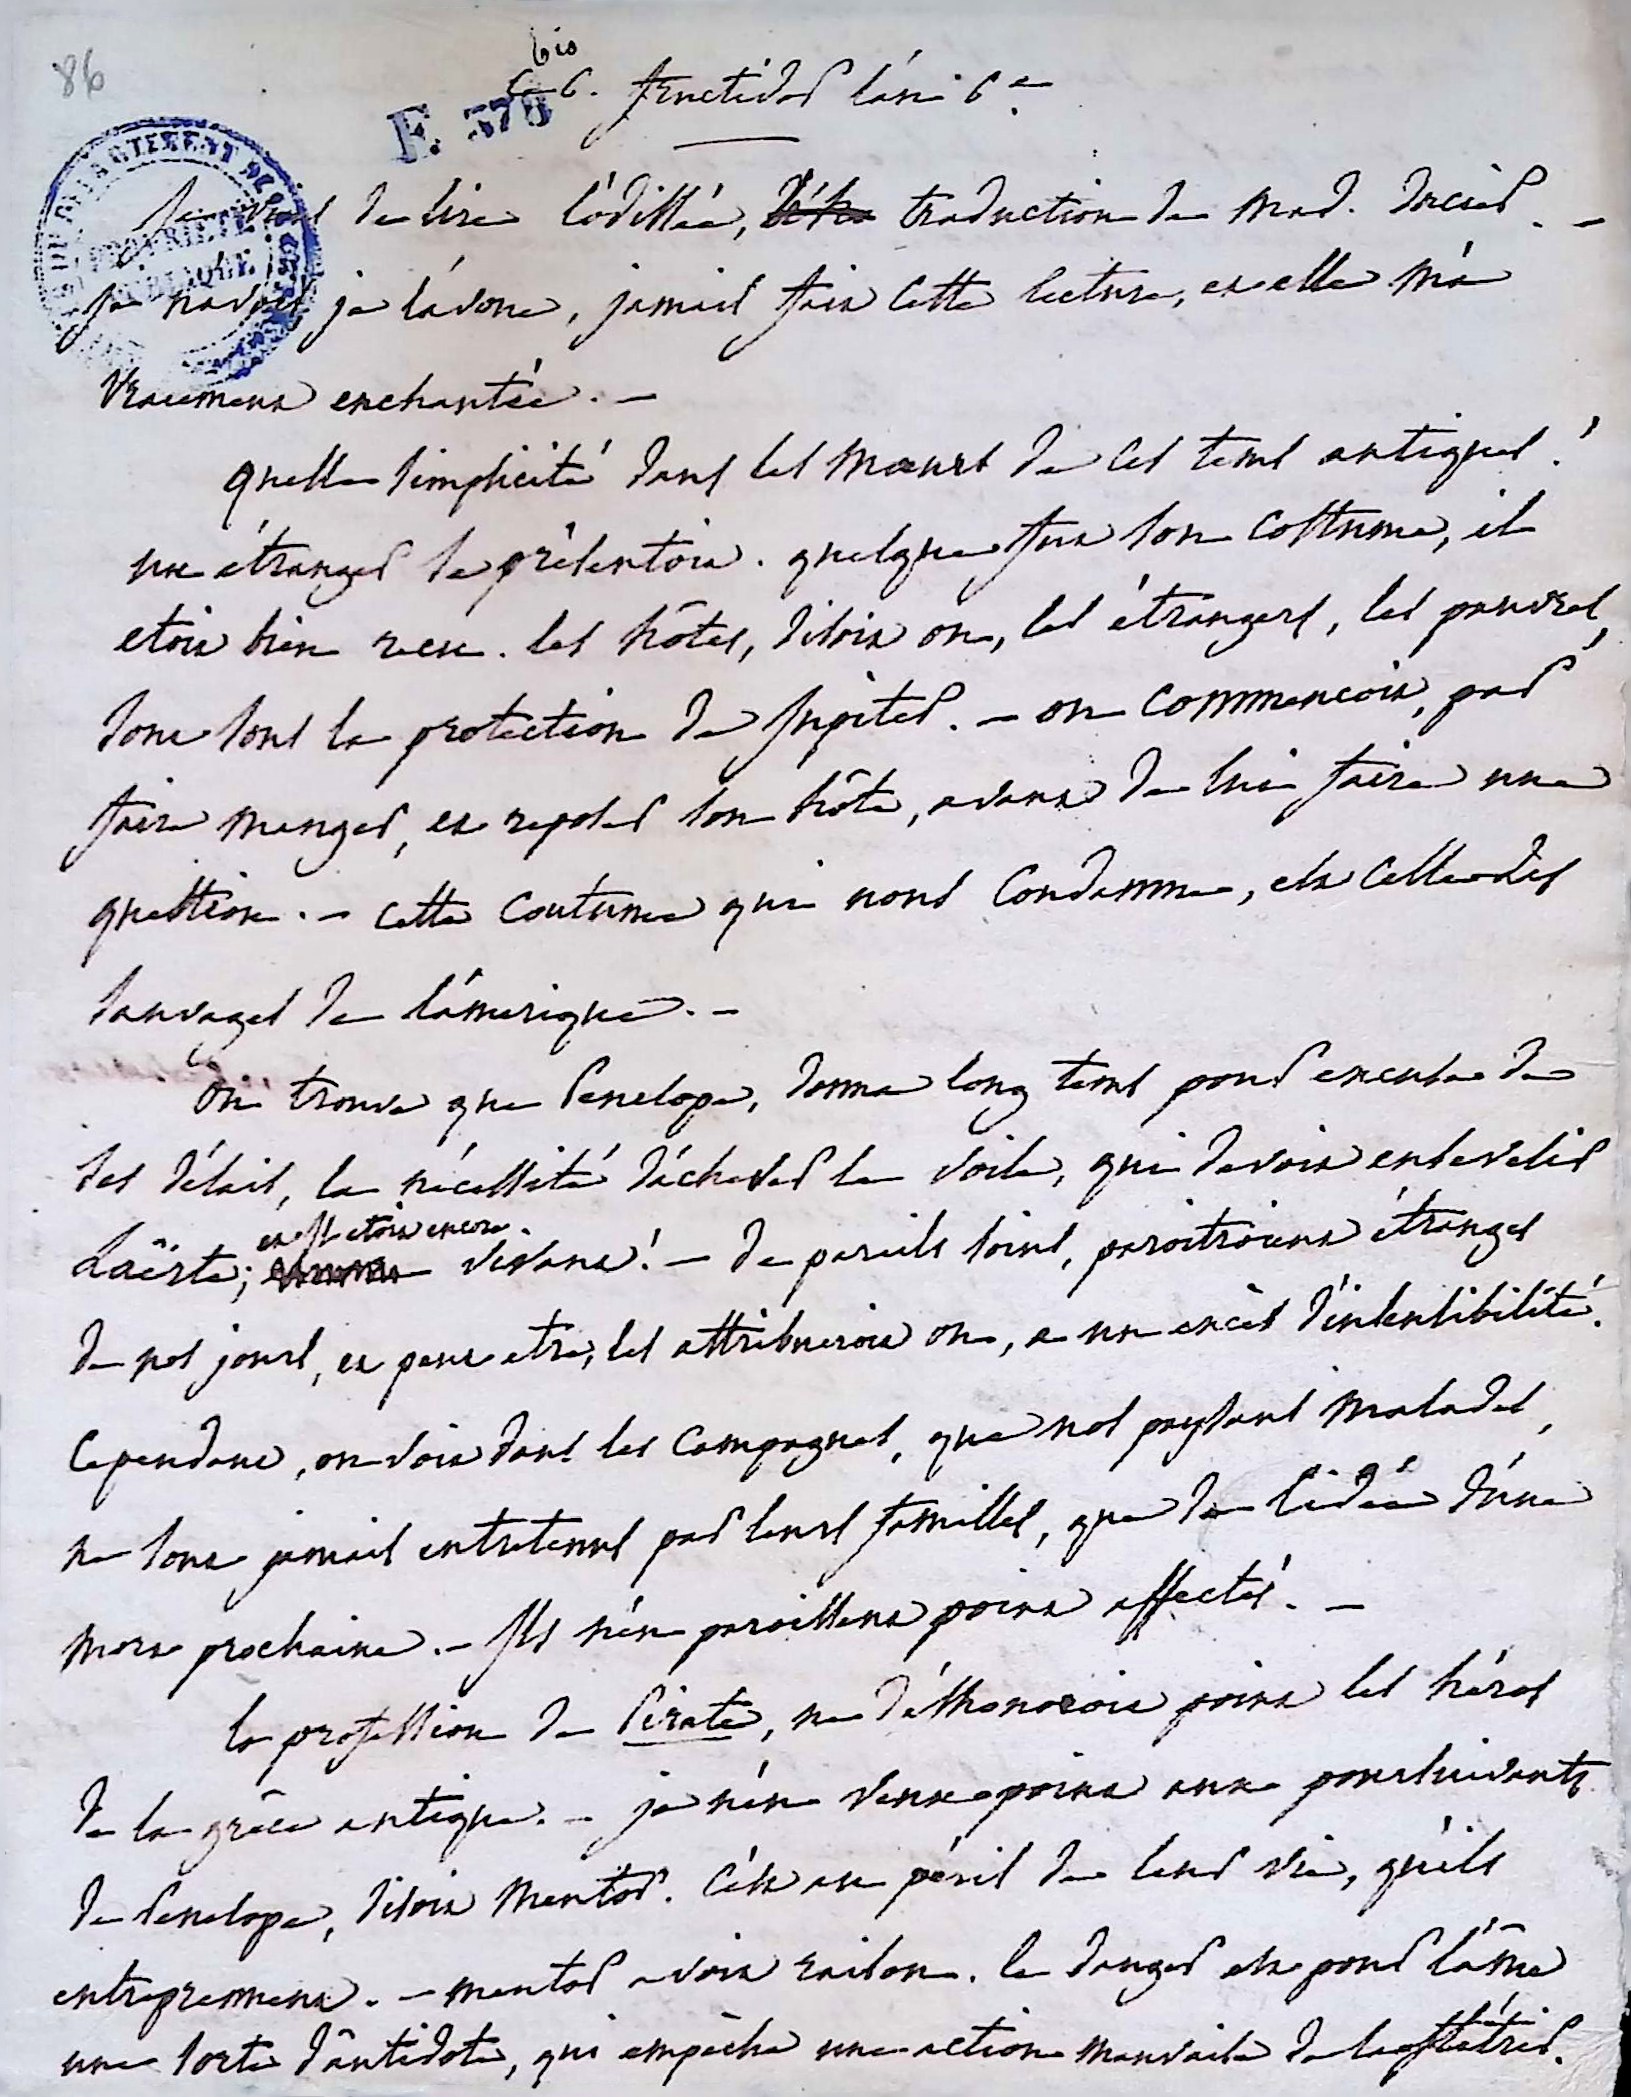 86
bis
Ce 6. fructidor l'an 6e.
F. 378
PROPRIÉTÉ
PUBLIQUE
Je viens de lire l'odissée, traduction de Mad. Dacier. –
je n'avois je l'avoue, jamais fait cette lecture, et elle m'a
vraiment enchantée. –
quelle simplicité dans les mœurs de ces tems antiques !
un étranger se présentoit. quelque fut son costume, il
etoit bien recu. les hôtes, disoit on, les étrangers, les pauvres,
sont sous la protection de Jupiter. – on commencoit, par
faire manger, et reposer son hôte, avant de lui faire une
question. – cette coutume qui nous condamne, est celle des
sauvages de l'amérique. –
On trouve que Penelope, donna long tems pour excuse de
ses délais, la nécessité d'achever le voile, qui devoit ensevelir
Laërte; et il etoit encore vivant ! – de pareils soins, paroitroient étranges
de nos jours, et peut etre, les attribueroit on, a un excès d'insensibilité.
Cependant, on voit dans les campagnes, que nos paysans malades,
ne sont jamais entretenus par leurs familles, que de l'idée d'une
mort prochaine. – Ils n'en paroissent point affectés. –
la profession de Pirate, ne déshonoroit point les héros
de la grèce antique. – je n'en veux point aux poursuivants
de Penelope, disoit Mentor. C'est au péril de leur vie, qu'ils
entreprennent. – mentor avoit raison. le danger est pour l'âme
une sorte d'antidote, qui empêche une action mauvaise de la flétrir.